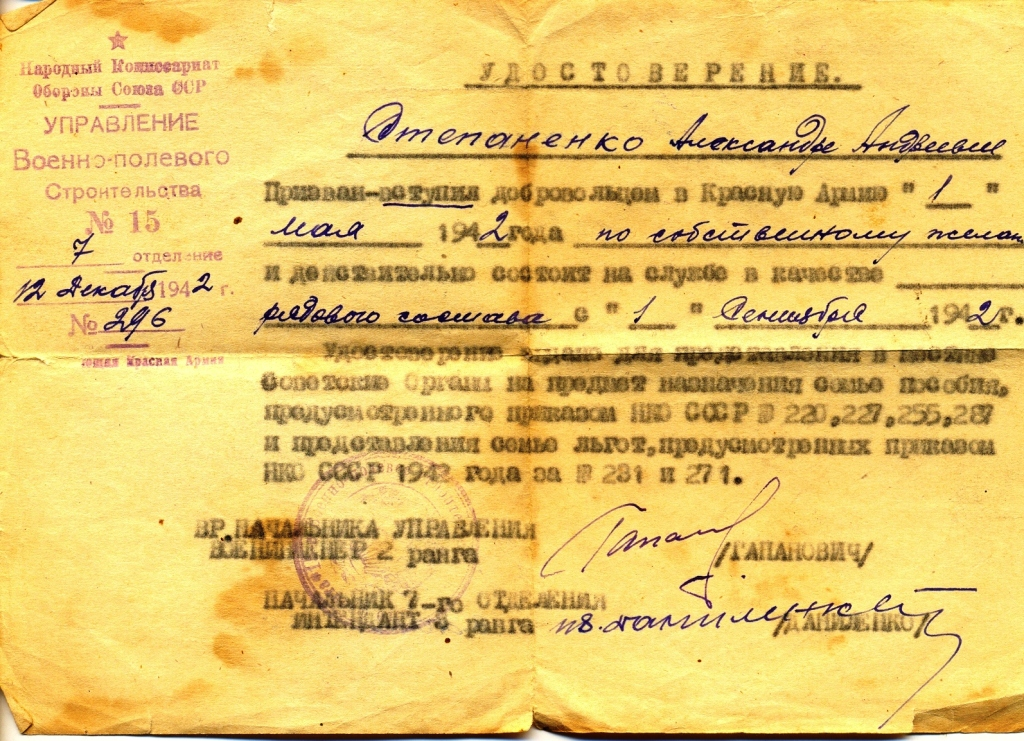 Народный Комиссариат
Обороны Союза ССР
УПРАВЛЕНИЕ
Военно-полевого
Строительства
№ 15
7 отделение
12 Декабр 1942 г.
№ 296
Красная Армия
УДОСТОВЕРЕНИЕ.
Степаненко Александр Андреевич
Призван-вступил добровольцем в Красную Армию "1"
мая 1942 года по собственному желан
и действительно состоит на службе в качестве
рядового состава с "1" Сентября 1942 г.
Удостоверение выдано для представления в местные
Советские Органы на предмет назначения семье пособия,
предусмотренного приказом НКО СССР № 220,227,255,287
и представления семье льгот,предусмотренных приказом
НКО СССР 1942 года за № 281 и 271.
ВР.НАЧАЛЬНИКА УПРАВЛЕНИЯ
ВОЕНИНЖЕНЕР 2 ранга /ГАПАНОВИЧ/
НАЧАЛЬНИК 7-го ОТДЕЛЕНИЯ
ИНТЕНДАНТ 3 ранга /ДАНИЛЕНКО/